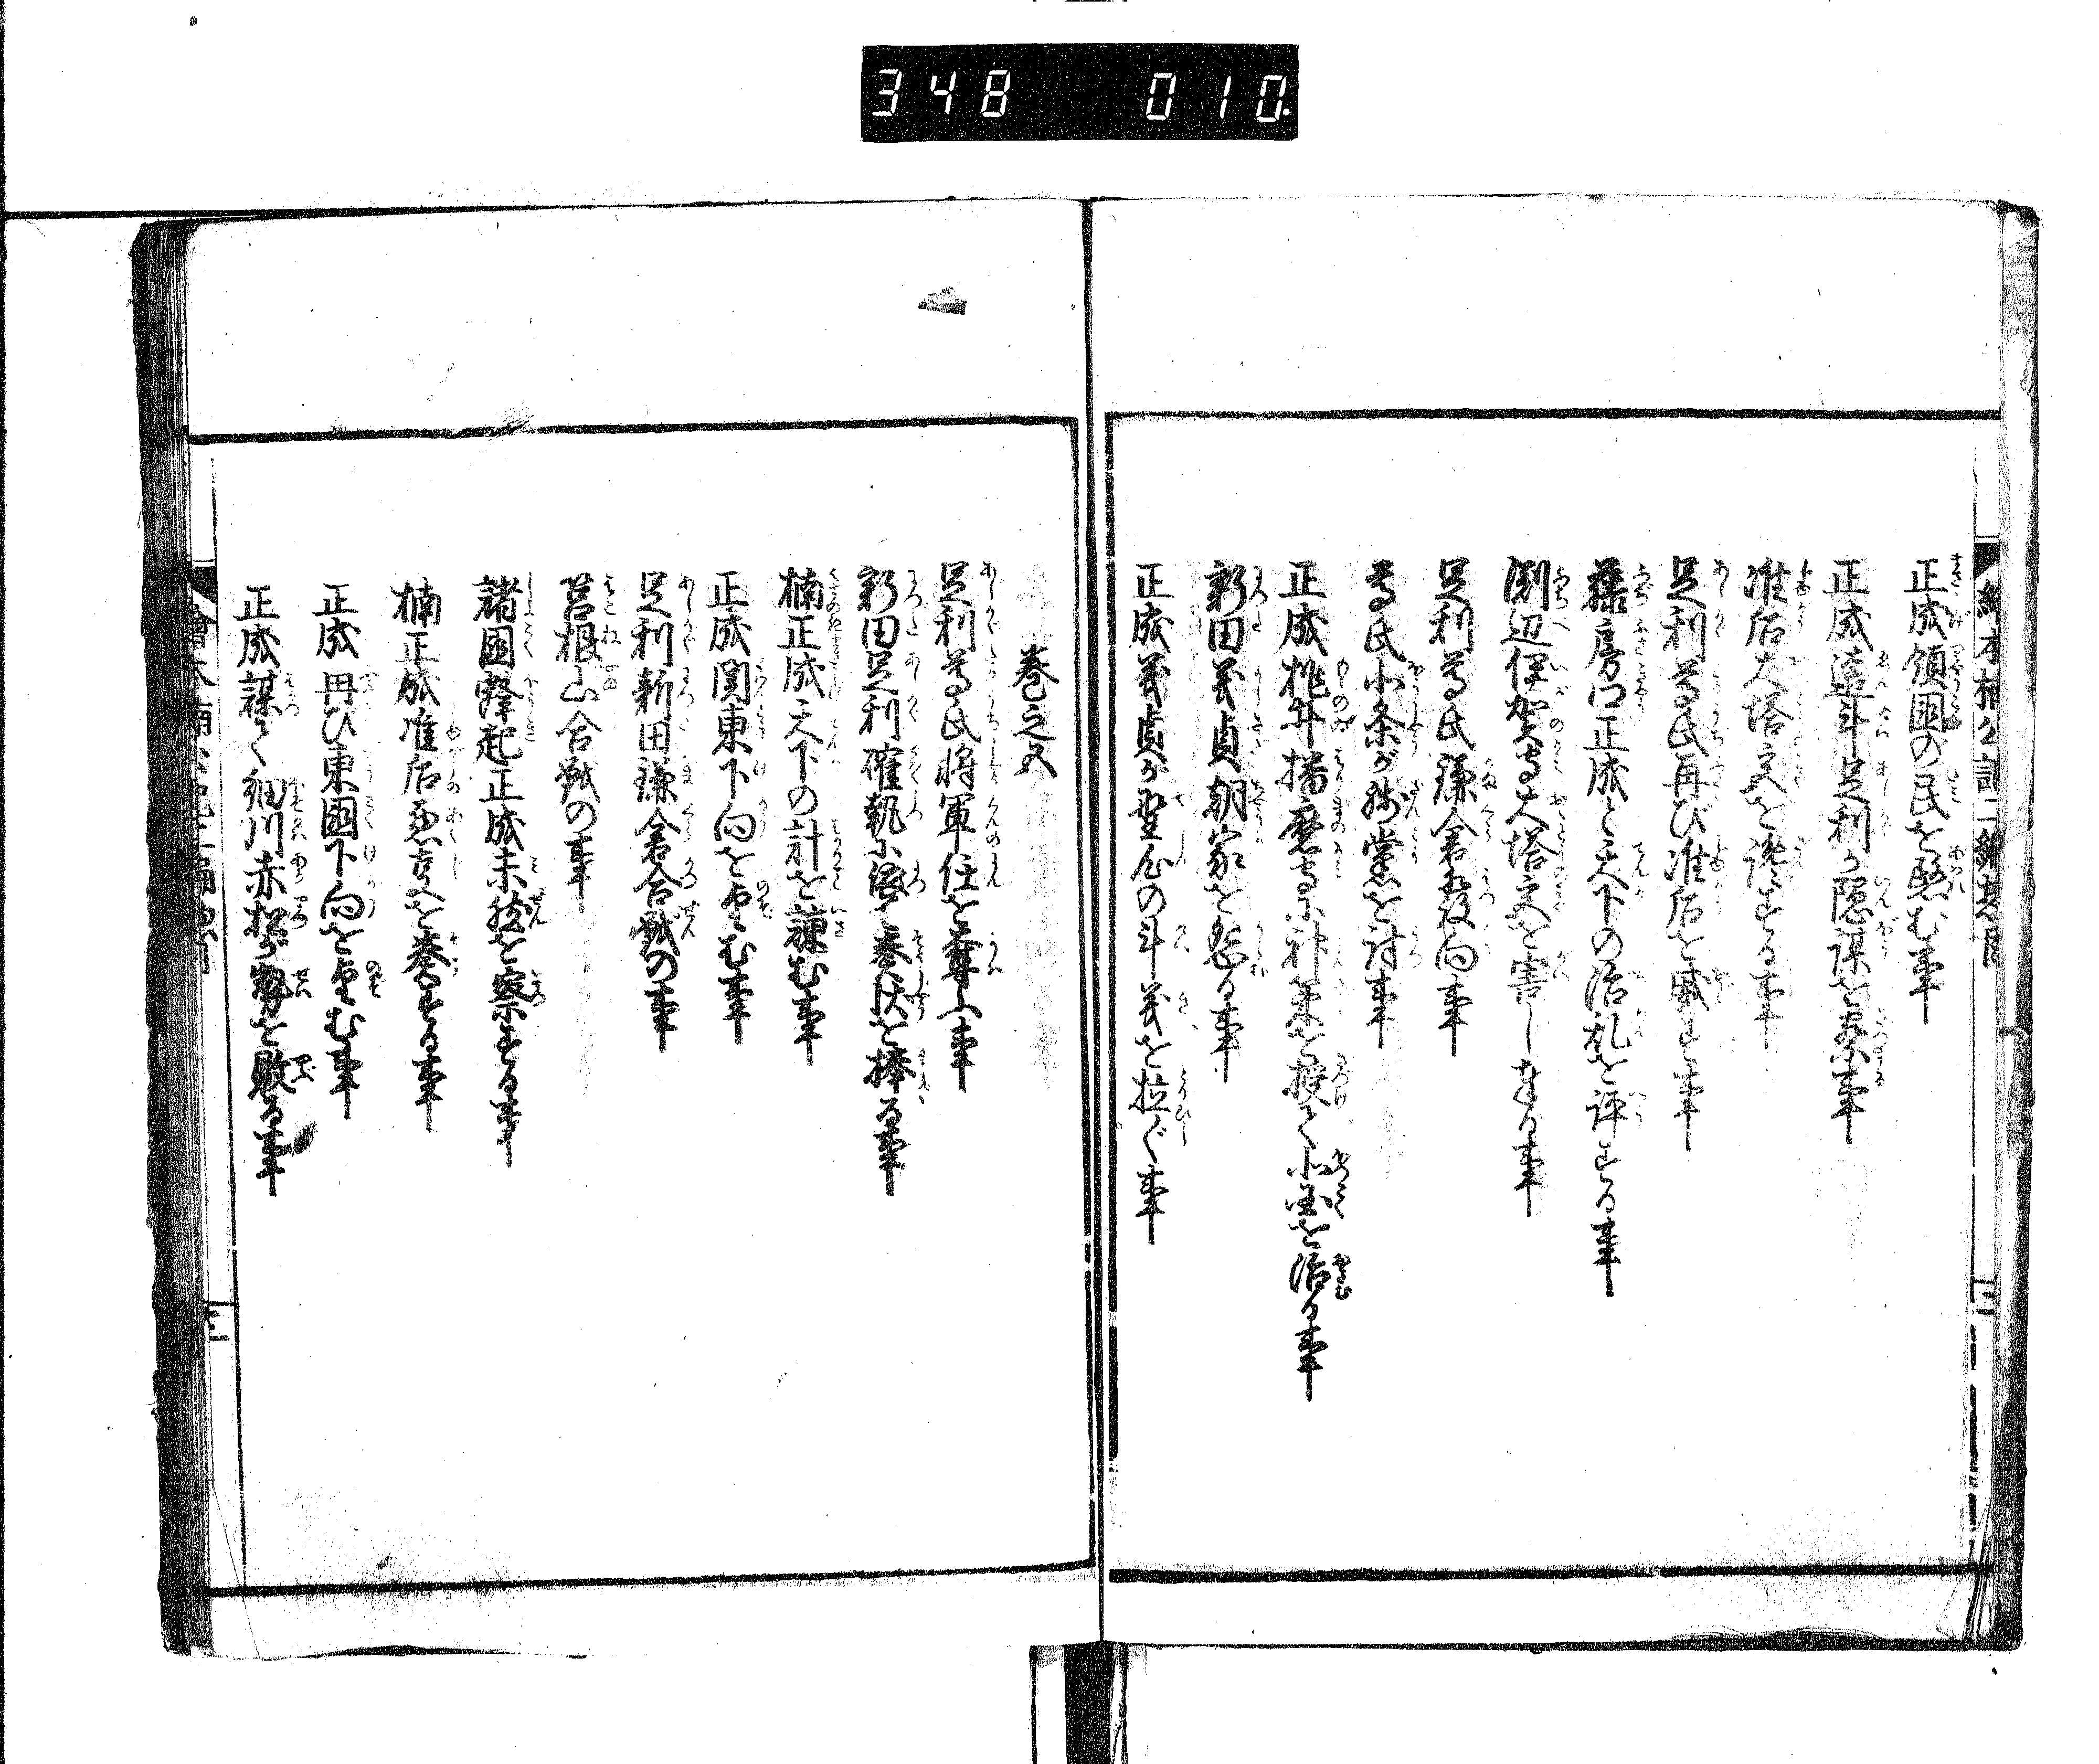 348 010
正成領國の民を愍む事
正成遠斗足利が隠謀を察事
准后大塔宮を讒する事
足利尊氏再び准后を威す事
藤房卿正成と天下の治乱を評する事
渕辺伊賀守大塔宮を害し奉る事
足利尊氏鎌倉發向事
尊氏小条が残黨を討事
正成桃井播磨守に神策を授て小国を治る事
新田義貞朝家を怨る事
正成義貞が聖人の斗義を拉ぐ事
巻之五
足利尊氏将軍任を奪ふ事
新田足利確執に依て奏状を捧る事
楠正成天下の計を諫む事
正成関東下向を望む事
足利新田鎌倉合戦の事
筥根山合戦の事
諸國蜂起正成未然を察する事
楠正成准后悪言を奏する事
正成再び東國下向を望む事
正成謀て細川赤松が勢を敗る事